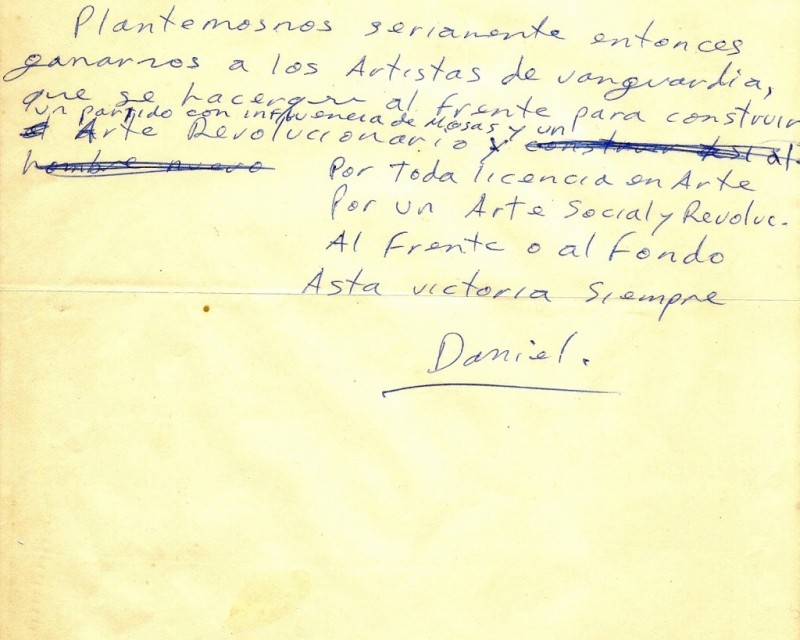 Plantemosnos seriamente entonces
ganarnos a los Artistas de vanguardia,
que se hacerquen al frente para construir
un partido con influencia de Masas y un
el Arte Revolucionario y construir
hombre nuevo Por Toda licencia en Arte
Por un Arte Social y Revoluc.
Al Frente o al Fondo
Asta victoria Siempre
Daniel.